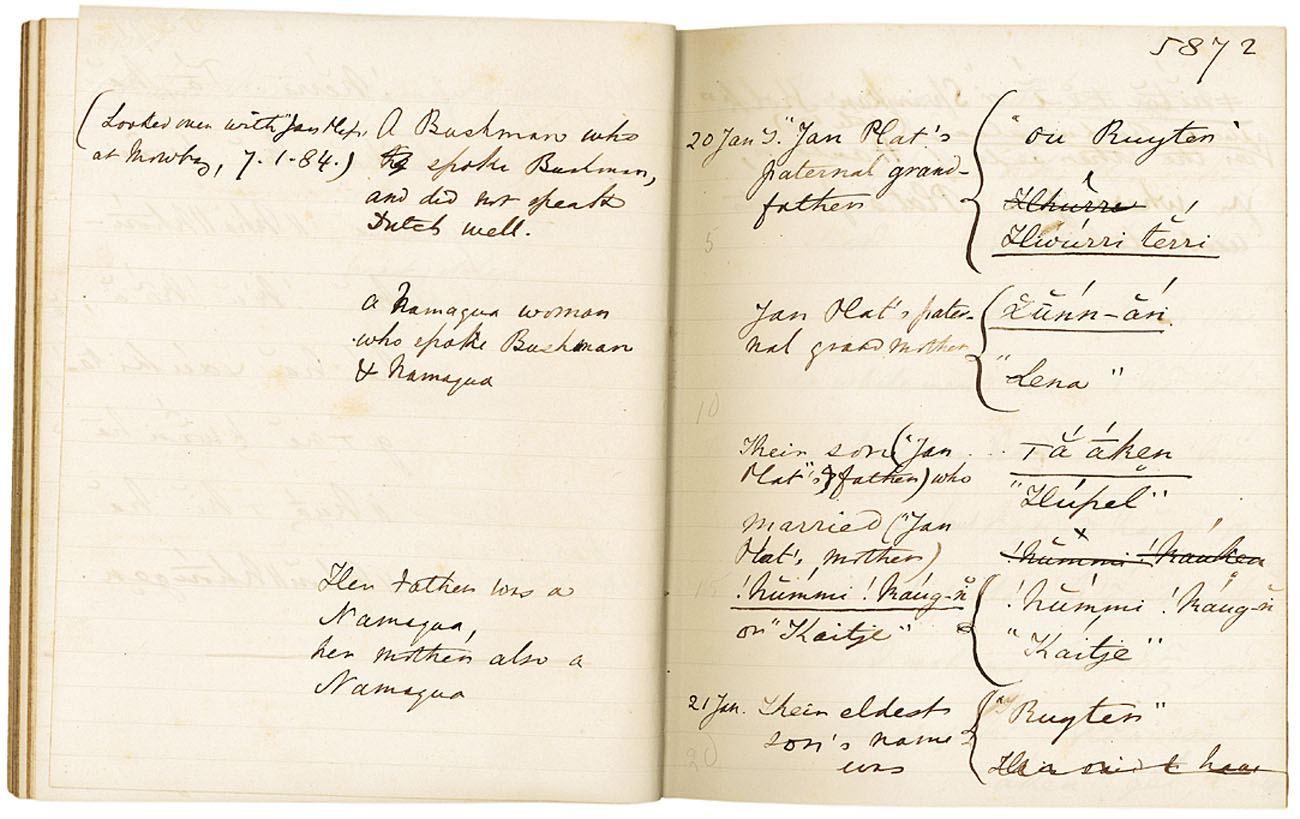 (Looked over with "Jan Plat,"
at Mowbray, 7.1-84.)
A Bushman who
spoke Bushman,
and did not speak
Dutch well.
A Namaqua woman
who spoke Bushman
& Namaqua
Her father was a
Namaqua,
her mother also a
Namaqua
5872
20 Jan. "Jan Plat's
paternal grand-
father
"ou Ruyter"
terri
5
Jan Plat's pater-
nal grandmother
"Lena"
10
Their son ("Jan
Plat"'s father) who
Tắ áken
married ("Jan
Plat's mother)
!nŭmmi !káuken
15
!nŭmmi !káug-n
or "Kaitje"
!nŭmmi !káug-n
"Kaitje"
21 Jan. Their eldest
son's name
was
"Ruyter"
20